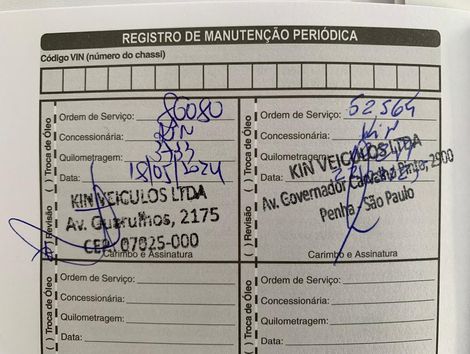 REGISTRO DE MANUTENÇÃO PERIÓDICA
Código VIN (número do chassi)
( ) Troca de Óleo
Ordem de Serviço: 86080
Concessionária: KIN
Quilometragem:
Data: 18/05/2024
( ) Revisão
KIN VEICULOS LTDA
Av. Guarulhos, 2175
CEP. 07025-000
Carimbo e Assinatura
( ) Troca de Óleo
Ordem de Serviço: 62564
Concessionária: Kin
Quilometragem:
Data:
( ) Revisão
KIN VEICULOS LTDA
Av. Governador Carvalho Pinto, 2900
Penha - São Paulo
Carimbo e Assinatura
( ) Troca de Óleo
Ordem de Serviço:
Concessionária:
Quilometragem:
Data:
( ) Troca de Óleo
Ordem de Serviço:
Concessionária:
Quilometragem:
Data: